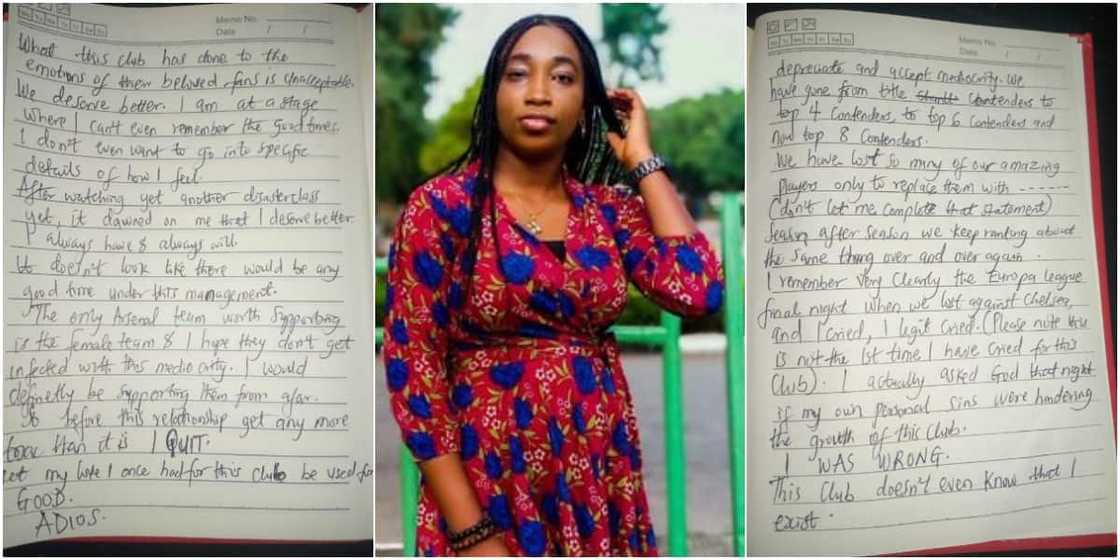 Memo No.
Date / /
What this club has done to the
emotions of their beloved fans is unacceptable.
We deserve better. I am at a stage
where I can't even remember the good times.
I don't even want to go into specific
details of how I feel.
After watching yet another disasterclass
yet, it dawned on me that I deserve better.
I always have & always will.
It doesn't look like there would be any
good time under this management.
The only Arsenal team worth supporting
is the female team & I hope they don't get
infected with this mediocrity. I would
definetly be supporting them from afar.
So before this relationship get any more
toxic than it is I QUIT.
Let my love I once had for this club be used for
GOOD.
ADIOS.
Memo No.
Date / /
depreciate and accept mediocrity. We
have gone from title contenders to
top 4 contenders, to top 6 contenders and
now top 8 contenders.
We have lost so many of our amazing
players only to replace them with ------
(don't let me complete that statement)
Season after season we keep ranting about
the same thing over and over again.
I remember very clearly the Europa league
final night when we lost against Chelsea
and I cried, I legit cried. (Please note this
is not the 1st time I have cried for this
club). I actually asked God that night
if my own personal sins were hindering
the growth of this club.
I WAS WRONG.
This club doesn't even know that I
exist.